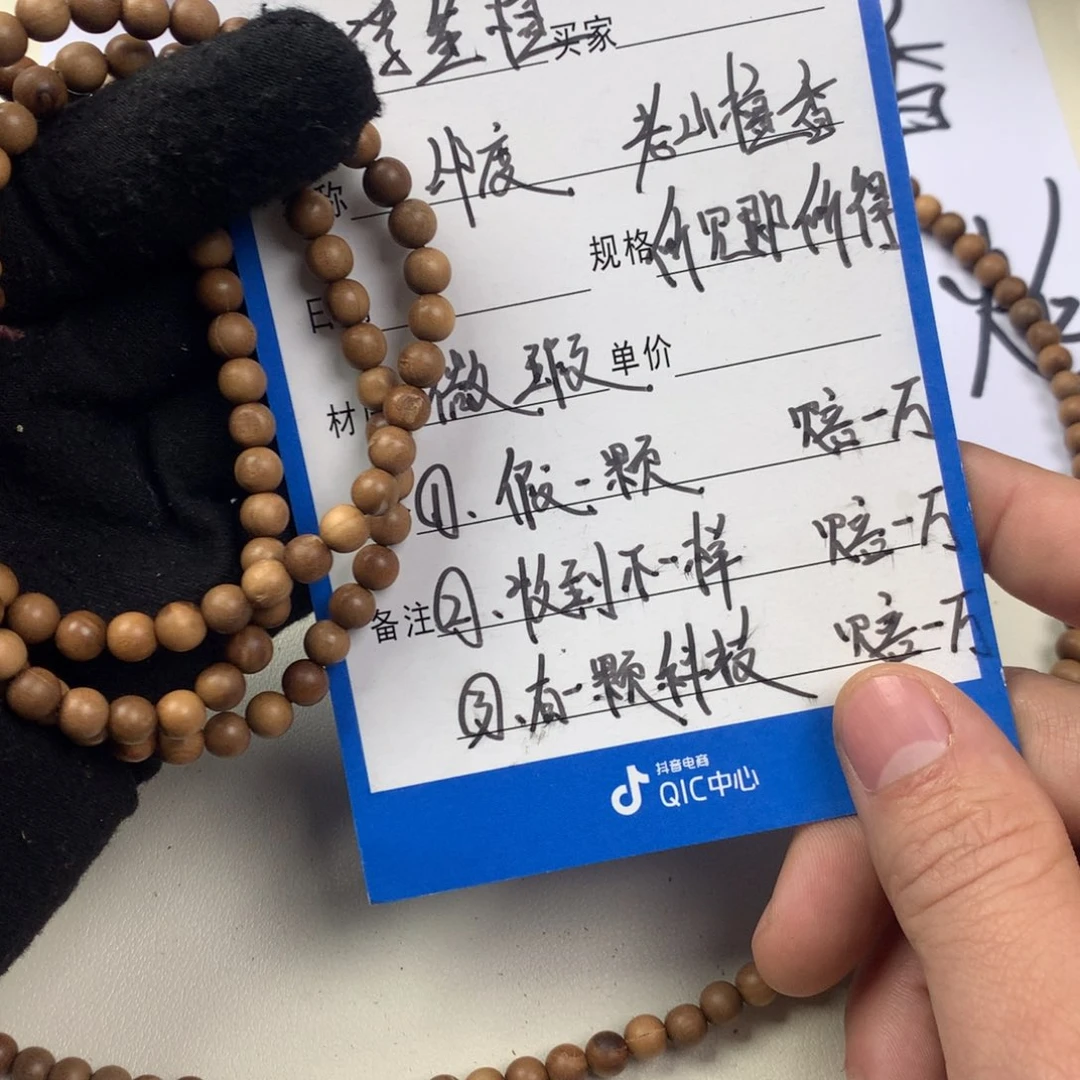 李先植 买家
称 印度 老山檀香
规格 所见即所得
日期
材质 微瑕 单价
①.假一颗 赔一万
备注 ②.收到不一样 赔一万
③.有一颗科技 赔一万
抖音电商
QIC中心